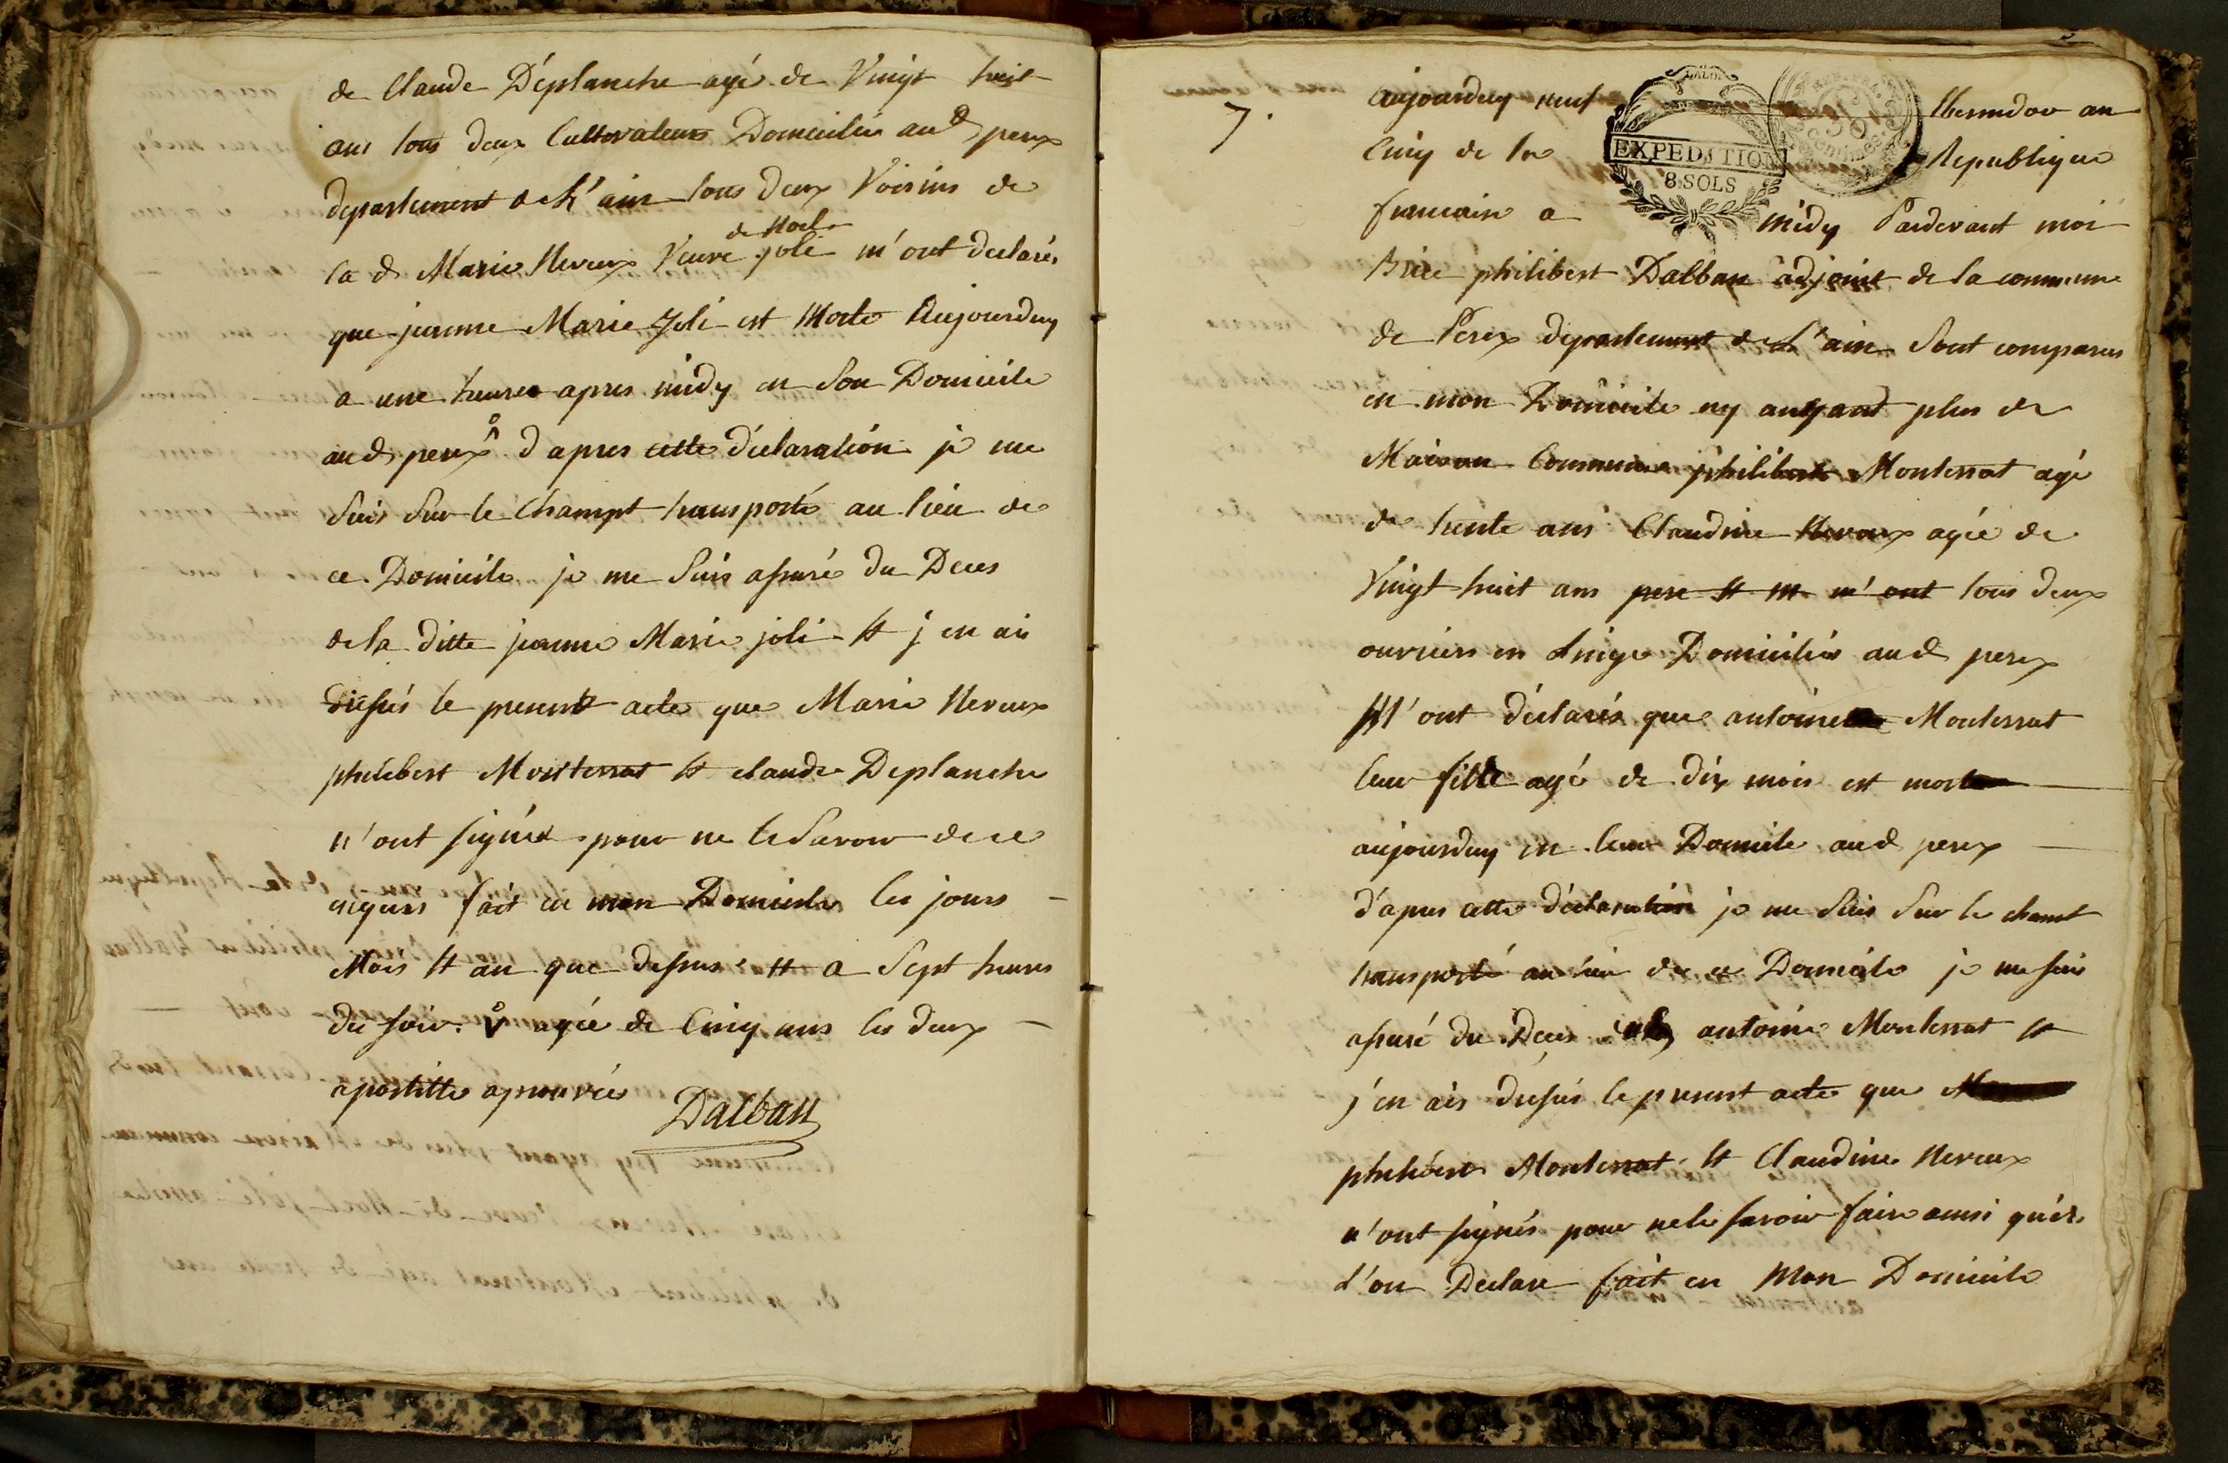 de Claude Déplanche agé de Vingt huit
ans tous deux Cultivateurs Domicilié aud perex
departement de L'ain tous deux Voisins de
de Noel
la d Marie Nereux Veuve joli m'ont declarés
que jeanne Marie Joli est Morte Aujourduy
a une heure apres midy en Son Domicile
aud perex d apres cette déclaration je me
Suis Sur le Champt transporté au lieu de
ce Domicile je me Suis assuré du Deces
de la ditte jeanne Marie joli et j en ais
dressés le present acte que Marie Nereux
philibert Monterrat et claude Deplanche
n'ont signés pour ne le Savoir de ce
enquis fait en mon Domicile les jours
Mois et an que dessus et a Sept heures
du soir. agée de Cinq ans les deux
apostille aprouvée
Dalban
7.
EXPEDITION
8 SOLS
aujourduy neuf thermidor an
Cinq de la Republique
francaise a midy Pardevant moi
Brice philibert Dalban adjoint de la commune
de Perex departement de L'ain Sont comparus
en mon Domicile ny auyant plus de
Maison Commune philibert Monterrat agé
de trente ans Claudine Nereux agée de
Vingt huit ans pere et m m'ont tous deux
ouvriers en Linge Domiciliés aud perex
M'ont déclarés que antoine Monterrat
leur fille agé de dix mois est mort
aujourduy en leur Domicile aud perex
d'apres cette déclaration je me Suis Sur le chamt
transporté au lieu de ce Domicile je me suis
assuré du Deces antoine Monterrat et
j'en ais dressés le present acte que
philibert Monterrat et Claudine Nereux
n'ont signés pour ne le savoir faire ainsi qu'ils
l'on Declare fait en Mon Domicile